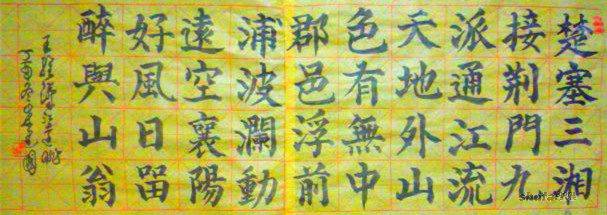 楚塞三湘
接荆門九
派通江流
天地外山
色有無中
郡邑浮前
浦波瀾動
遠空襄陽
好風日留
醉與山翁